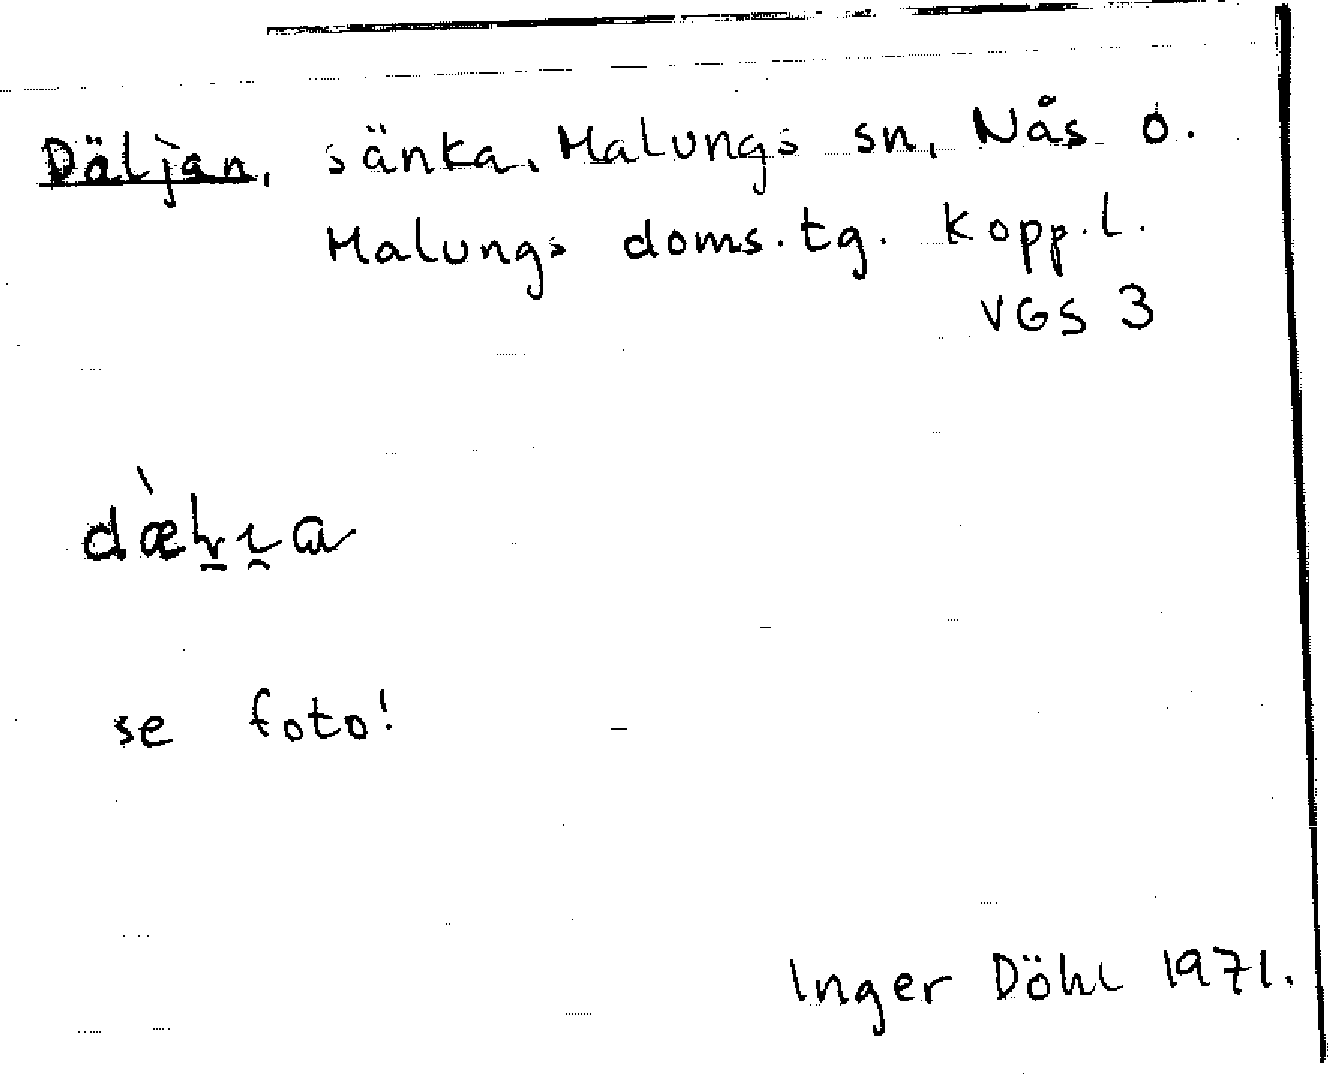 Däljan, sänka, Malungs sn, Nås o.
Malungs doms.tg. Kopp.l.
VGS 3
se foto!
Inger Döhl 1971.